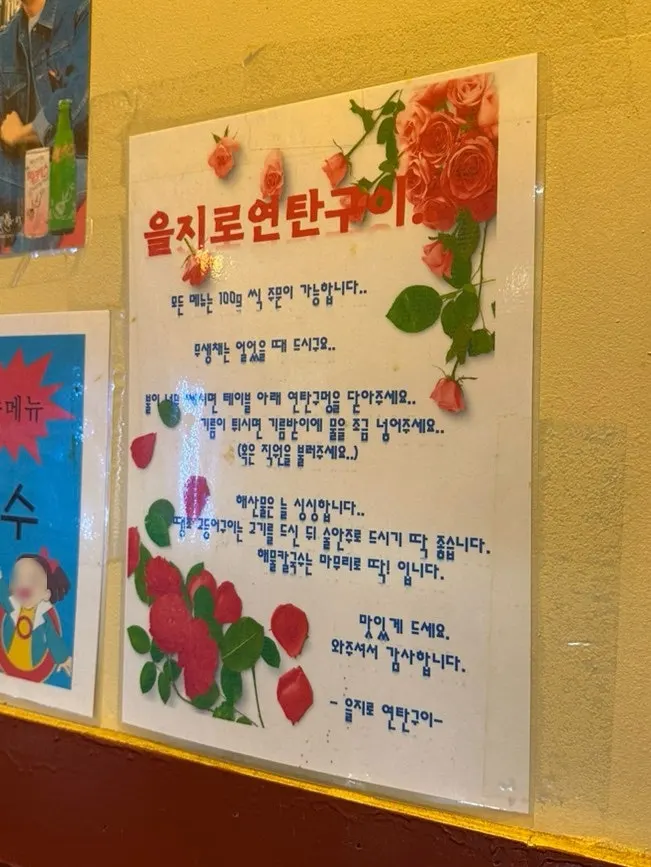 을지로연탄구이..
모든 메뉴는 100g 씩 주문이 가능합니다..
무생채는 얼었을 때 드시구요..
불이 너무 쎄시면 테이블 아래 연탄구멍을 닫아주세요..
기름이 튀시면 기름받이에 물을 조금 넣어주세요..
(혹은 직원을 불러주세요..)
해산물은 늘 싱싱합니다..
고등어구이는 고기를 드신 뒤 술안주로 드시기 딱 좋습니다.
해물칼국수는 마무리로 딱! 입니다.
맛있게 드세요.
와주셔서 감사합니다.
- 을지로 연탄구이-
메뉴
수